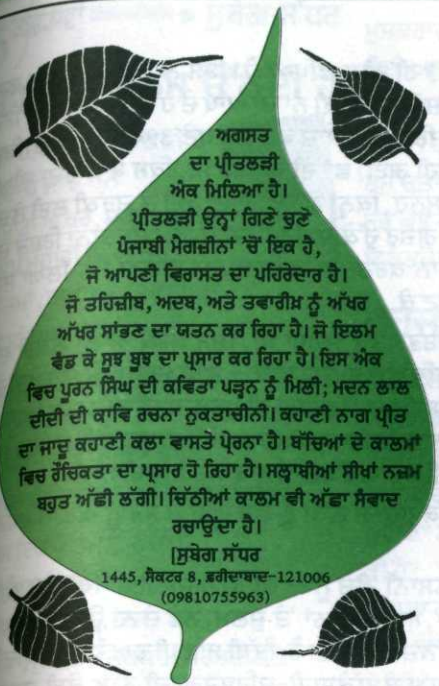 ਅਗਸਤ
ਦਾ ਪ੍ਰੀਤਲੜੀ
ਅੰਕ ਮਿਲਿਆ ਹੈ।
ਪ੍ਰੀਤਲੜੀ ਉਨ੍ਹਾਂ ਗਿਣੇ ਚੁਣੇ
ਪੰਜਾਬੀ ਮੈਗਜ਼ੀਨਾਂ 'ਚੋਂ ਇਕ ਹੈ,
ਜੋ ਆਪਣੀ ਵਿਰਾਸਤ ਦਾ ਪਹਿਰੇਦਾਰ ਹੈ।
ਜੋ ਤਹਿਜ਼ੀਬ, ਅਦਬ, ਅਤੇ ਤਵਾਰੀਖ਼ ਨੂੰ ਅੱਖਰ
ਅੱਖਰ ਸਾਂਭਣ ਦਾ ਯਤਨ ਕਰ ਰਿਹਾ ਹੈ। ਜੋ ਇਲਮ
ਵੰਡ ਕੇ ਸੂਝ ਬੂਝ ਦਾ ਪ੍ਰਸਾਰ ਕਰ ਰਿਹਾ ਹੈ। ਇਸ ਅੰਕ
ਵਿਚ ਪੂਰਨ ਸਿੰਘ ਦੀ ਕਵਿਤਾ ਪੜ੍ਹਨ ਨੂੰ ਮਿਲੀ; ਮਦਨ ਲਾਲ
ਦੀਦੀ ਦੀ ਕਾਵਿ ਰਚਨਾ ਨੁਕਤਾਚੀਨੀ। ਕਹਾਣੀ ਨਾਗ ਪ੍ਰੀਤ
ਦਾ ਜਾਦੂ ਕਹਾਣੀ ਕਲਾ ਵਾਸਤੇ ਪ੍ਰੇਰਨਾ ਹੈ। ਬੱਚਿਆਂ ਦੇ ਕਾਲਮਾਂ
ਵਿਚ ਰੌਚਿਕਤਾ ਦਾ ਪ੍ਰਸਾਰ ਹੋ ਰਿਹਾ ਹੈ। ਸਲ੍ਹਾਬੀਆਂ ਸੀਖਾਂ ਨਜ਼ਮ
ਬਹੁਤ ਅੱਛੀ ਲੱਗੀ। ਚਿੱਠੀਆਂ ਕਾਲਮ ਵੀ ਅੱਛਾ ਸੰਵਾਦ
ਰਚਾਉਂਦਾ ਹੈ।
[ਸੁਬੇਗ ਸੱਧਰ
1445, ਸੈਕਟਰ 8, ਫ਼ਰੀਦਾਬਾਦ-121006
(09810755963)